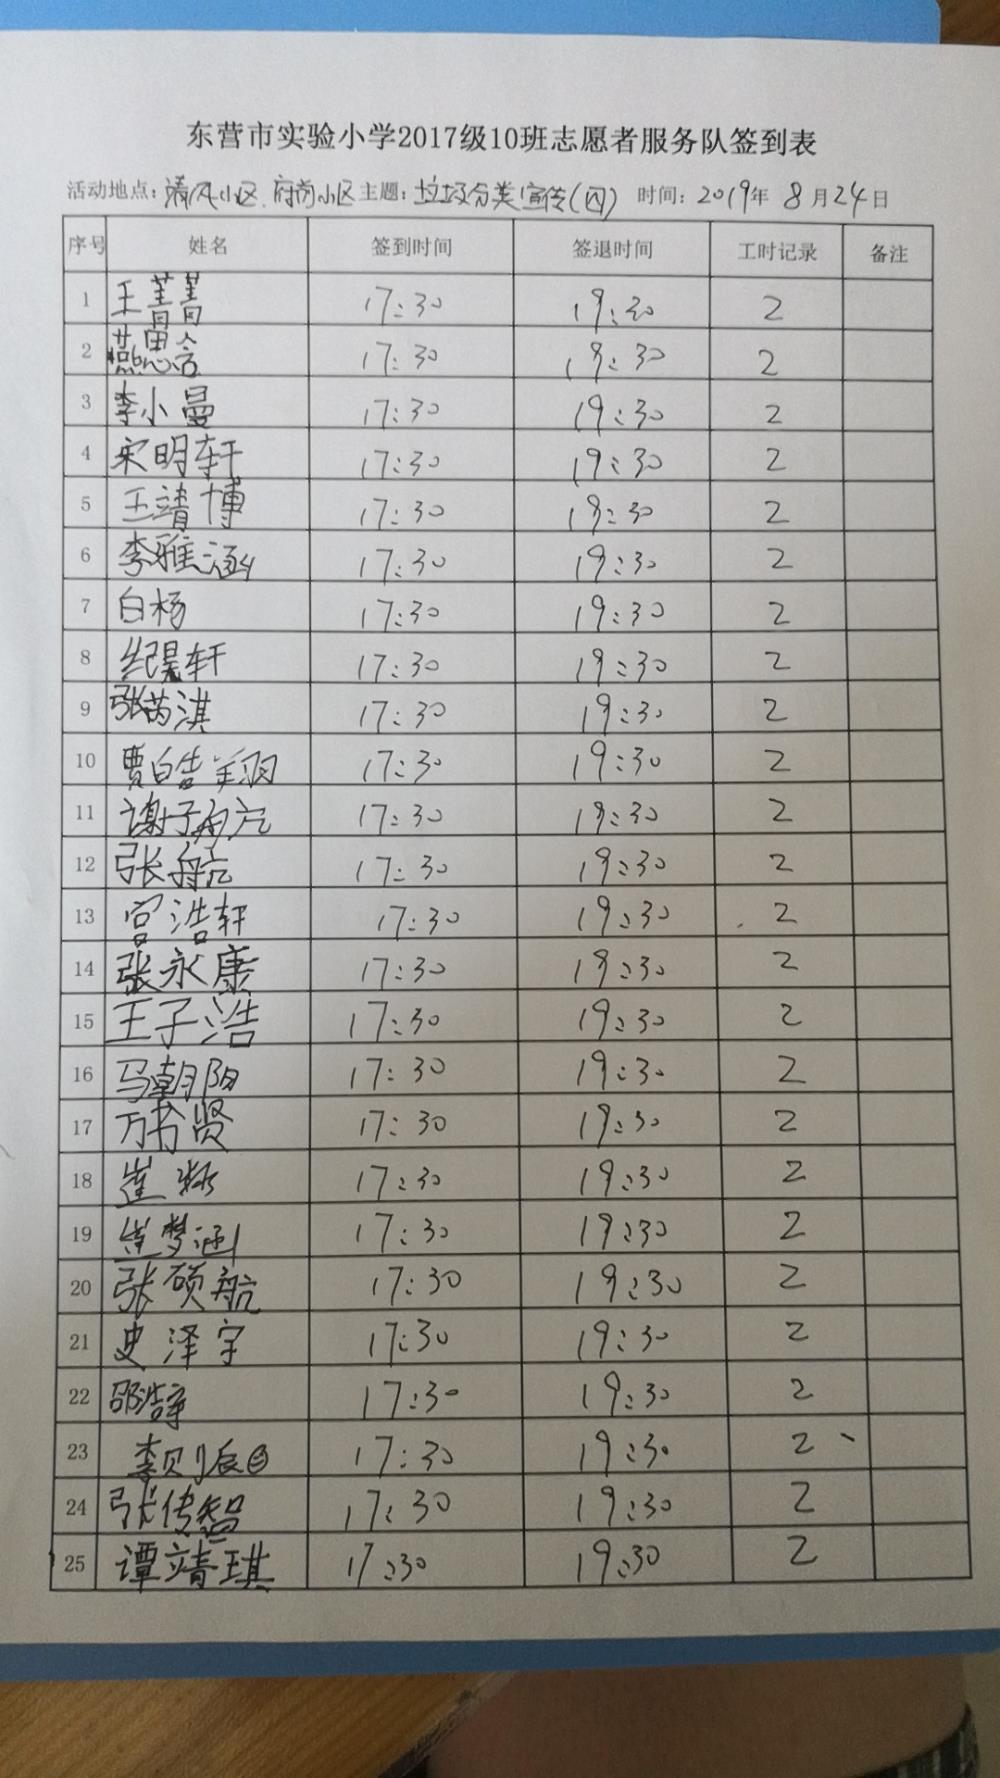 东营市实验小学2017级10班志愿者服务队签到表
活动地点：清风小区、府前小区 主题：垃圾分类宣传(四) 时间：2019年 8月24日
序号 姓名 签到时间 签退时间 工时记录 备注
1 王菁菁 17:30 19:30 2
2 燕思含 17:30 19:30 2
3 李小曼 17:30 19:30 2
4 宋明轩 17:30 19:30 2
5 王靖博 17:30 19:30 2
6 李雅涵 17:30 19:30 2
7 白杨 17:30 19:30 2
8 纪昊轩 17:30 19:30 2
9 张芮淇 17:30 19:30 2
10 贾皓翔 17:30 19:30 2
11 谢子航 17:30 19:30 2
12 张航 17:30 19:30 2
13 宫浩轩 17:30 19:30 2
14 张永康 17:30 19:30 2
15 王子浩 17:30 19:30 2
16 马朝阳 17:30 19:30 2
17 万书贤 17:30 19:30 2
18 崔 17:30 19:30 2
19 崔梦涵 17:30 19:30 2
20 张硕航 17:30 19:30 2
21 史泽宇 17:30 19:30 2
22 邵浩 17:30 19:30 2
23 李贝辰 17:30 19:30 2
24 张传智 17:30 19:30 2
25 谭靖琪 17:30 19:30 2